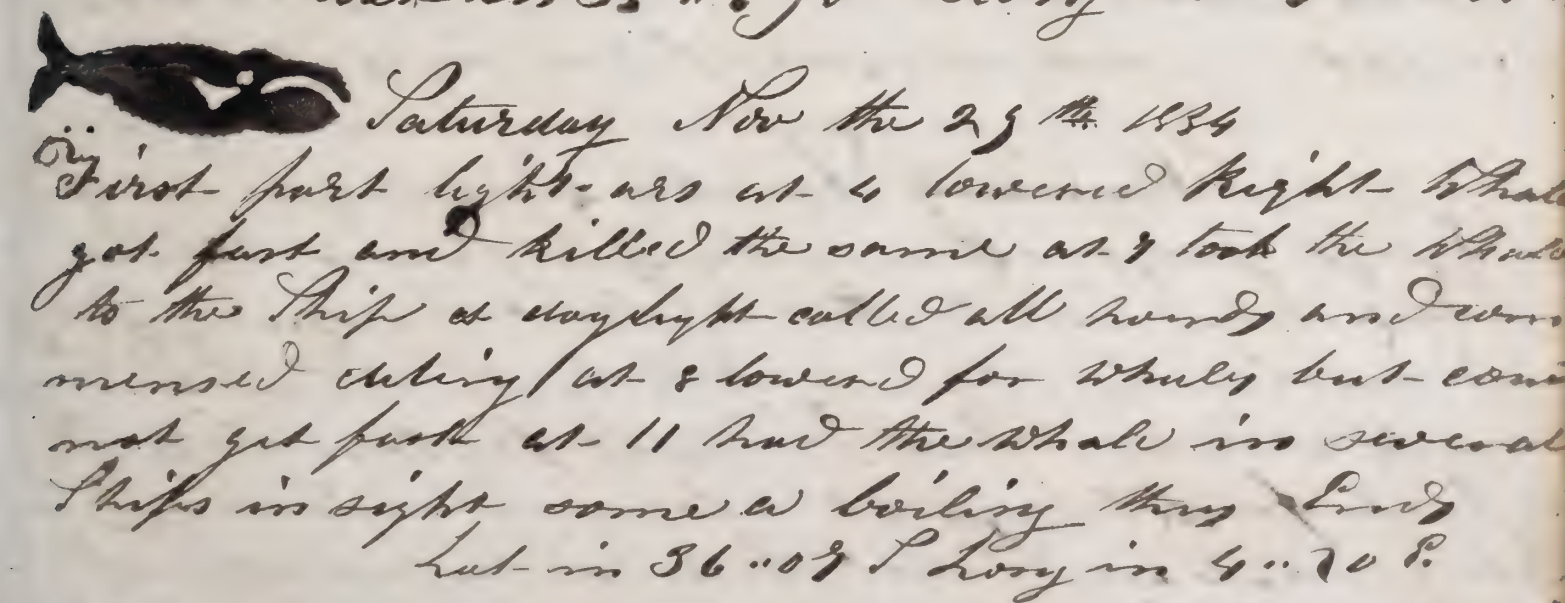 Saturday Nov the 29th 1834
First part light airs at 4 lowered Right Whale
got fast and killed the same at 7 took the Whale
to the Ship at daylight called all hands and com
mensed cuting at 8 lowered for whales but coud
not get fast at 11 had the whale in several
Ships in sight some a boiling thus Ends
Lat in 36..07 S Long in 4..20 E.